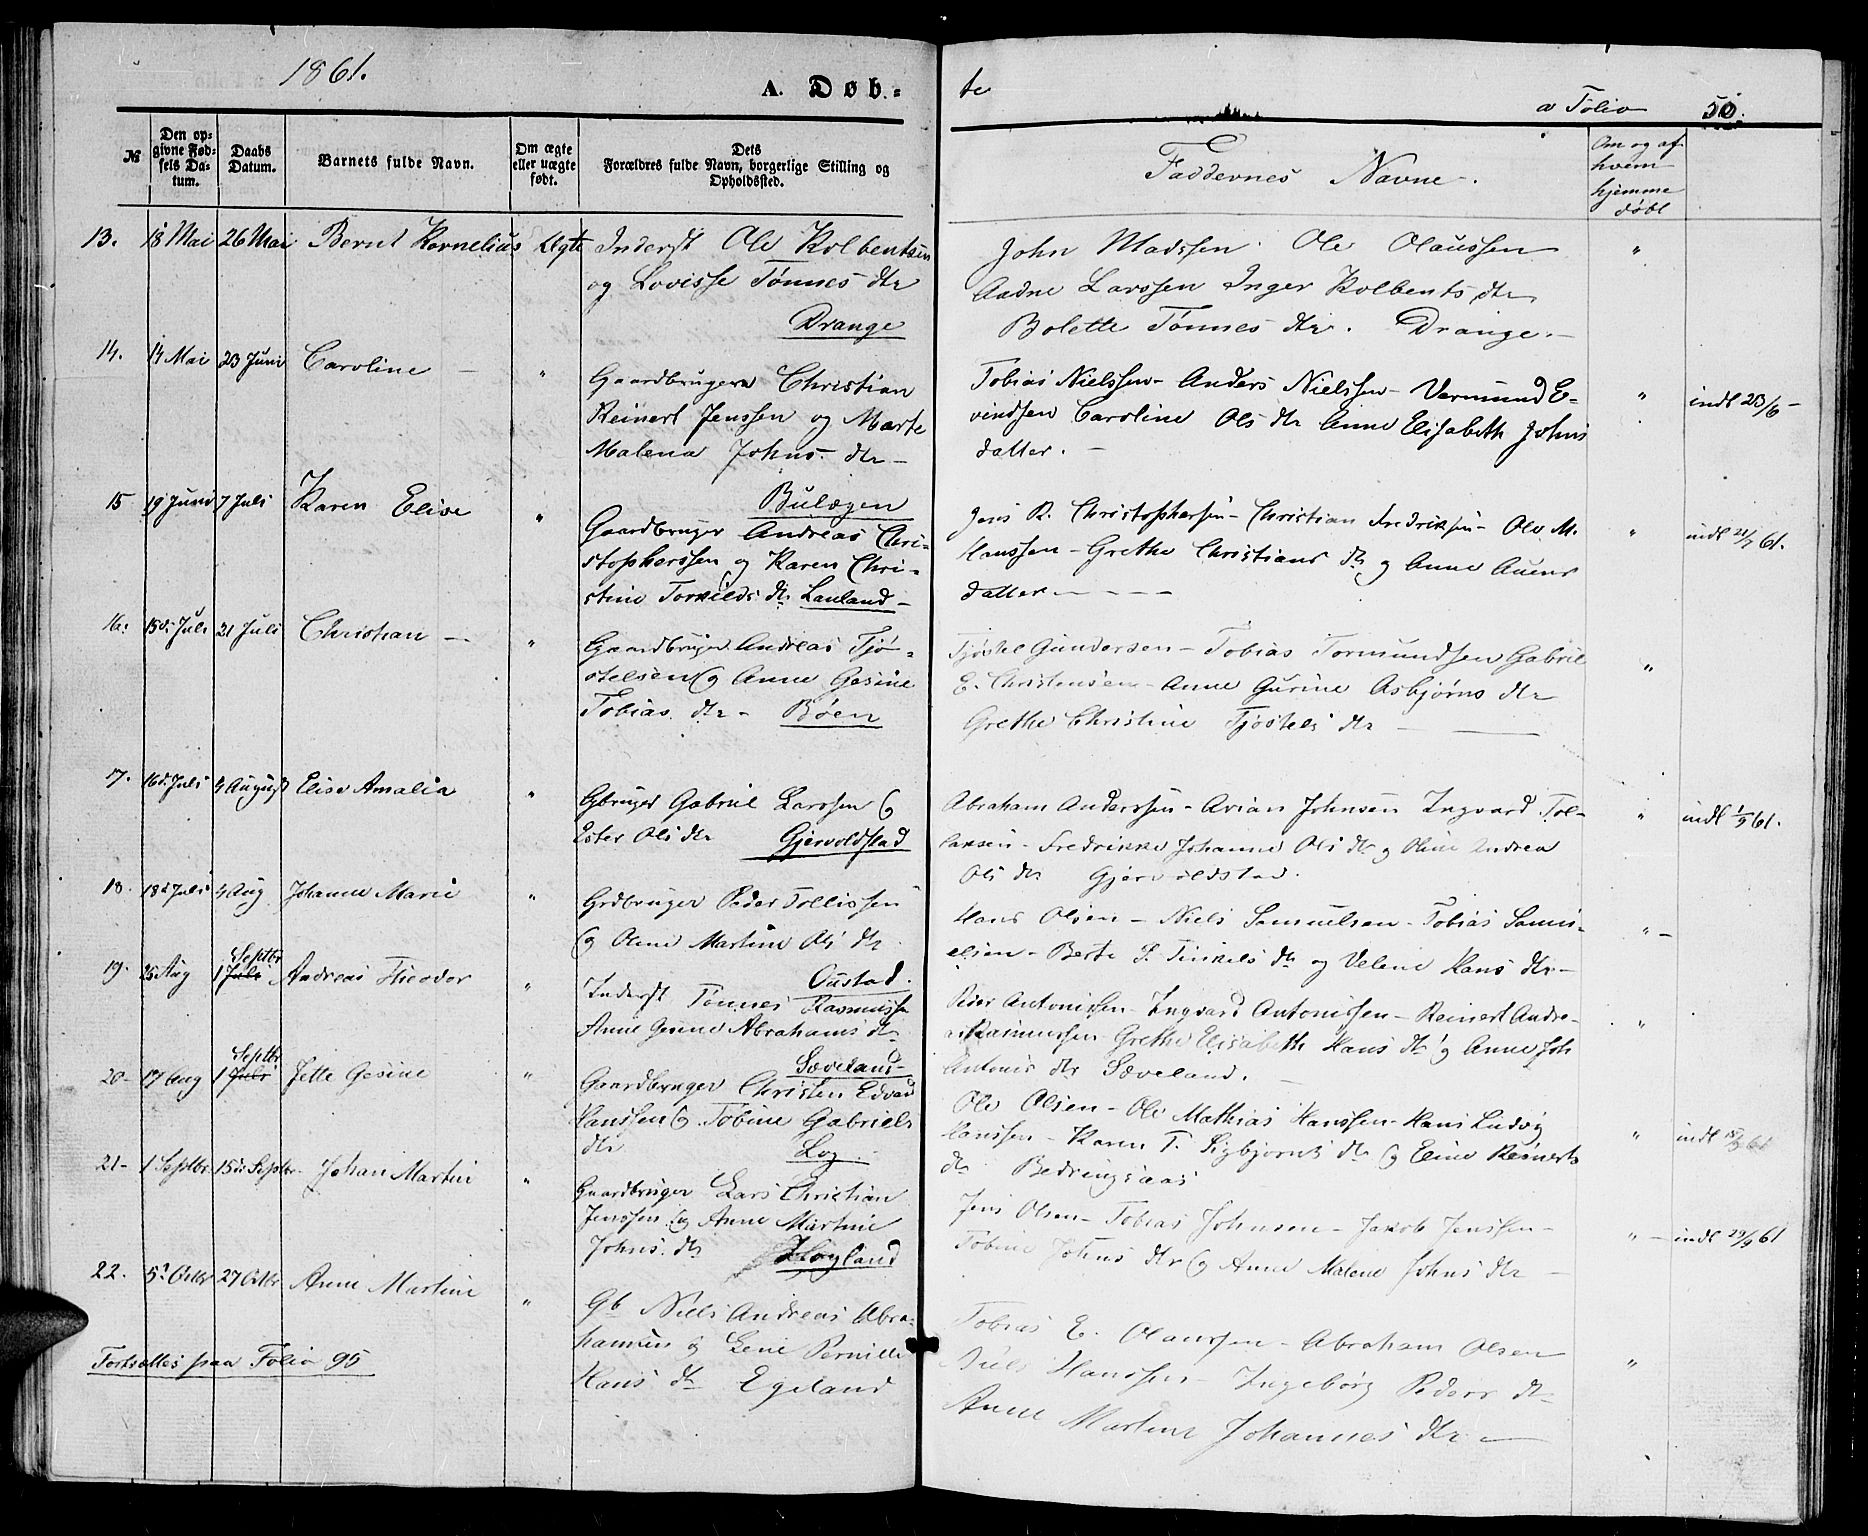 1861.
A. Døb-
te
a Folio 50.
№
Den op-
givne Fød-
sels Da-
tum.
Daabs
Datum.
Barnets fulde Navn.
Om ægte
eller uægte
født.
Dets
Forældres fulde Navn, borgerlige Stilling og
Opholdssted.
Faddernes Navne.
Om og af
hvem
hjemme
døbt
13. 18 Mai 26 Mai Bernt Kornelius Ægte Inderst Ole Kolbentsen
og Lovisse Tønnes dtr
Drange
John Madssen Ole Olaussen "
Aadne Larssen Inger Kolbents dtr
Bolette Tønnes dtr. Drange. -
14. 14 Mai 23 Juni Caroline - " Gaardbruger Christian
Reinert Jenssen og Marte
Malena Johns. dtr -
Bulægen
Tobias Nielssen - Anders Nielssen - Vermund E- " indl 23/6 -
vindsen Caroline Ols dtr Anne Elisabeth Johns
datter. -
15 19 Juni 7 Juli Karen Elise " Gaardbruger Andreas Chri-
stopherssen og Karen Chri-
stine Torkilds dtr Lauland -
Jens R. Christophersen - Christian Fredriksen - Ole M. " indl 21/7 61.
Hanssen - Grethe Christians dtr og Anne Auens
datter - - - -
16. 15d. Juli 21 Juli Christian - " Gaardbruger Andreas Tjø-
stelsen og Anne Gesine
Tobias dtr - Bøen
Tjøstel Gundersen - Tobias Tormundssen Gabriel "
E. Christensen - Anne Gurine Asbjørns dtr
Grethe Christine Tjøstels dtr -
17. 16d. Juli 4 August Elise Amalia " Gbruger Gabriel Larssen og
Ester Ols dtr Gjervoldstad
Abraham Anderssen - Arian Johnsen Ingvard Tol- " indl 1/9 61.
laksen - Fredrikke Johanne Ols dtr og Oline Andrea
Ols dtr Gjervoldstad.
18. 18d Juli 4 Aug Johanne Marie " Grdbruger Peder Tollissen
og Oline Martine Ols dtr
Oustad.
Hans Olsen - Niels Samuelsen - Tobias Samu- " -
elsen - Berte S. Tinkels dtr og Velene Hans dtr -
19. 25 Aug 1 Juli Septbr Andreas Theodor " Inderst Tønnes Rasmussen
Anne Gesine Abrahams dtr
Sæveland -
Peder Antonissen - Ingvard Antonissen - Reinert Andre- "
as Rasmussen Grethe Elisabeth Hans dtr og Anne Joh
Antonis dtr Sæveland. -
20 - 17 Aug 1 Juli Septbr Jette Gesine " Gaardbruger Christen Edvard
Hanssen og Tobine Gabriels
dtr Log -
Ole Olsen - Ole Mathias Hanssen - Hans Ludvig " indl 15/9 61
Hanssen - Karen T. Sigbjørns dtr og Eline Reinerts
dtr Bedringsaas
21 - 1 Septbr 15de Septbr Johan Martin " Gaardbruger Lars Christian
Jenssen og Anne Martine
Johns. dtr Høyland
Jens Olsen - Tobias Johnsen - Jakob Jenssen - " - indl 29/9 61
Tobine Johns dtr og Anne Malene Johns dtr -
22. 5te Octbr 27 Octbr Anne Martine " Gb Niels Andreas Abra-
hamsen og Lene Pernille
Hans dtr Egeland
Tobias E. Olaussen - Abraham Olsen "
Nils Hanssen - Ingeborg Peders dtr
Anne Martine Johannes dtr -
Fortsættes paa Folio 95